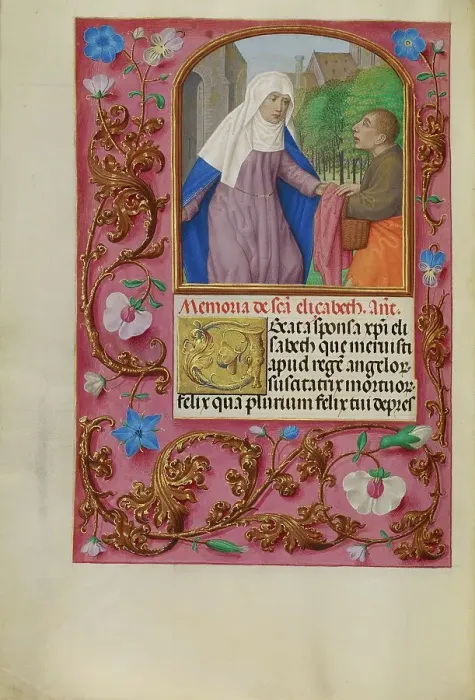 Memoria de scā elizabeth. Ant.
Beata sponsa xp̄i eli
sabeth que meruisti
apud regē angelor
suscitatrix mortuor
felix quā plurium felix tui depres